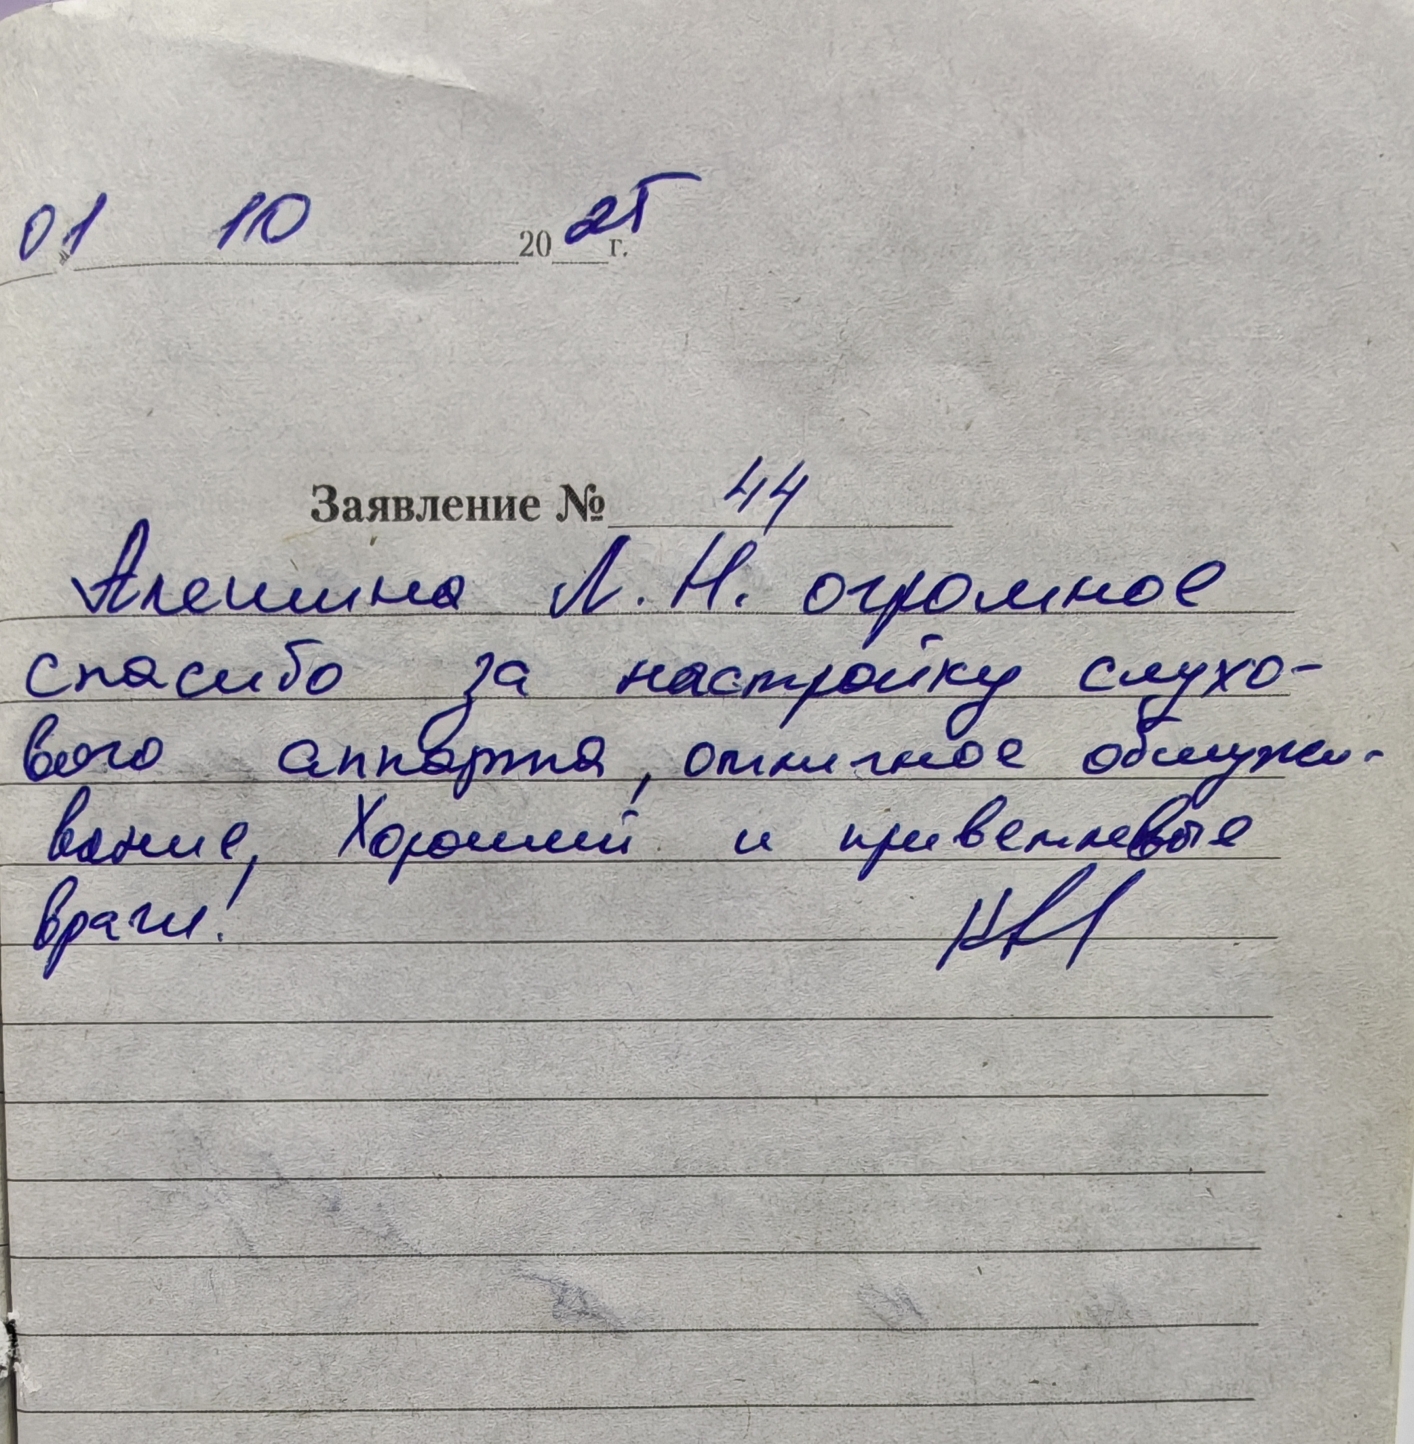 01 10 2025 г.
Заявление № 44
Алешина Л. Н. огромное
спасибо за настройку слухо-
вого аппарта, отличное обслужи-
вание, Хороший и приветлевые
врачи!